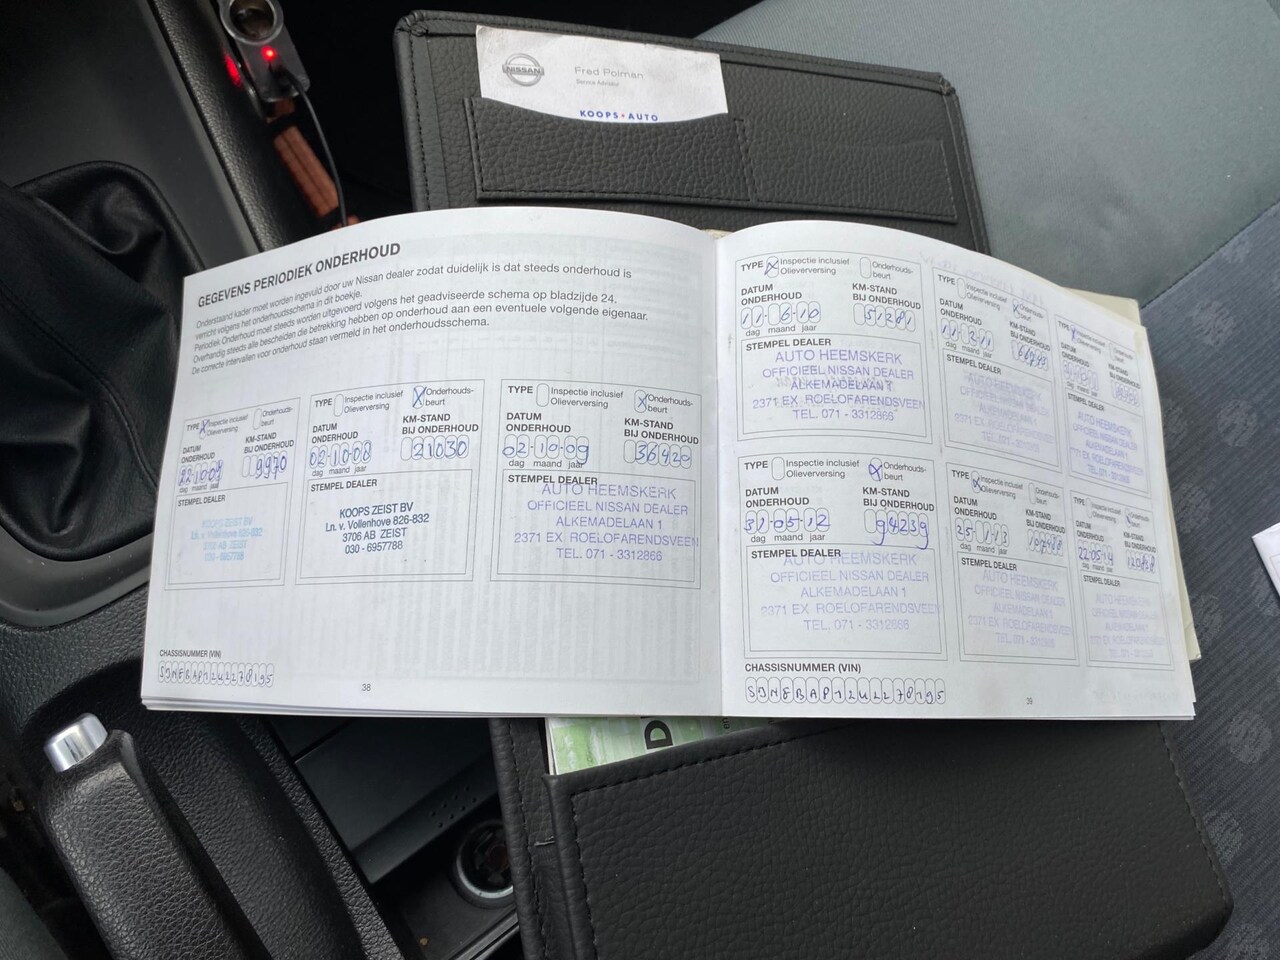 NISSAN
Fred Polman
Service Advisor
KOOPS • AUTO
GEGEVENS PERIODIEK ONDERHOUD
Onderstaand kader moet worden ingevuld door uw Nissan dealer zodat duidelijk is dat steeds onderhoud is
verricht volgens het onderhoudsschema in dit boekje.
Periodiek Onderhoud moet steeds worden uitgevoerd volgens het geadviseerde schema op bladzijde 24.
Overhandig steeds alle bescheiden die betrekking hebben op onderhoud aan een eventuele volgende eigenaar.
De correcte intervallen voor onderhoud staan vermeld in het onderhoudsschema.
TYPE X Inspectie inclusief Olieverversing Onderhouds-beurt
DATUM ONDERHOUD KM-STAND BIJ ONDERHOUD
9970
dag maand jaar
STEMPEL DEALER
KOOPS ZEIST BV
Ln. v. Vollenhove 826-832
3706 AB ZEIST
030 - 6957788
TYPE Inspectie inclusief Olieverversing X Onderhouds-beurt
DATUM ONDERHOUD KM-STAND BIJ ONDERHOUD
02-10-08 21030
dag maand jaar
STEMPEL DEALER
KOOPS ZEIST BV
Ln. v. Vollenhove 826-832
3706 AB ZEIST
030 - 6957788
TYPE Inspectie inclusief Olieverversing X Onderhouds-beurt
DATUM ONDERHOUD KM-STAND BIJ ONDERHOUD
02-10-09 36420
dag maand jaar
STEMPEL DEALER
AUTO HEEMSKERK
OFFICIEEL NISSAN DEALER
ALKEMADELAAN 1
2371 EX ROELOFARENDSVEEN
TEL. 071 - 3312866
CHASSISNUMMER (VIN)
SJNEBAP12U2278195
38
TYPE X Inspectie inclusief Olieverversing Onderhouds-beurt
DATUM ONDERHOUD KM-STAND BIJ ONDERHOUD
11-6-10 51281
dag maand jaar
STEMPEL DEALER
AUTO HEEMSKERK
OFFICIEEL NISSAN DEALER
ALKEMADELAAN 1
2371 EX ROELOFARENDSVEEN
TEL. 071 - 3312866
TYPE Inspectie inclusief Olieverversing X Onderhouds-beurt
DATUM ONDERHOUD KM-STAND BIJ ONDERHOUD
dag maand jaar
STEMPEL DEALER
AUTO HEEMSKERK
OFFICIEEL NISSAN DEALER
ALKEMADELAAN 1
2371 EX ROELOFARENDSVEEN
TEL. 071 - 3312866
TYPE X Inspectie inclusief Olieverversing Onderhouds-beurt
DATUM ONDERHOUD KM-STAND BIJ ONDERHOUD
STEMPEL DEALER
AUTO HEEMSKERK
OFFICIEEL NISSAN DEALER
ALKEMADELAAN 1
TYPE Inspectie inclusief Olieverversing X Onderhouds-beurt
DATUM ONDERHOUD KM-STAND BIJ ONDERHOUD
31-05-12 94239
dag maand jaar
STEMPEL DEALER
AUTO HEEMSKERK
OFFICIEEL NISSAN DEALER
ALKEMADELAAN 1
2371 EX ROELOFARENDSVEEN
TEL. 071 - 3312866
TYPE X Inspectie inclusief Olieverversing Onderhouds-beurt
DATUM ONDERHOUD KM-STAND BIJ ONDERHOUD
25-1-13
dag maand jaar
STEMPEL DEALER
AUTO HEEMSKERK
OFFICIEEL NISSAN DEALER
ALKEMADELAAN 1
2371 EX ROELOFARENDSVEEN
TEL. 071 - 3312866
TYPE Inspectie inclusief Olieverversing X Onderhouds-beurt
DATUM ONDERHOUD KM-STAND BIJ ONDERHOUD
22-05-14
dag maand jaar
STEMPEL DEALER
AUTO HEEMSKERK
OFFICIEEL NISSAN DEALER
ALKEMADELAAN 1
CHASSISNUMMER (VIN)
SJNEBAP12U2278195
39
D